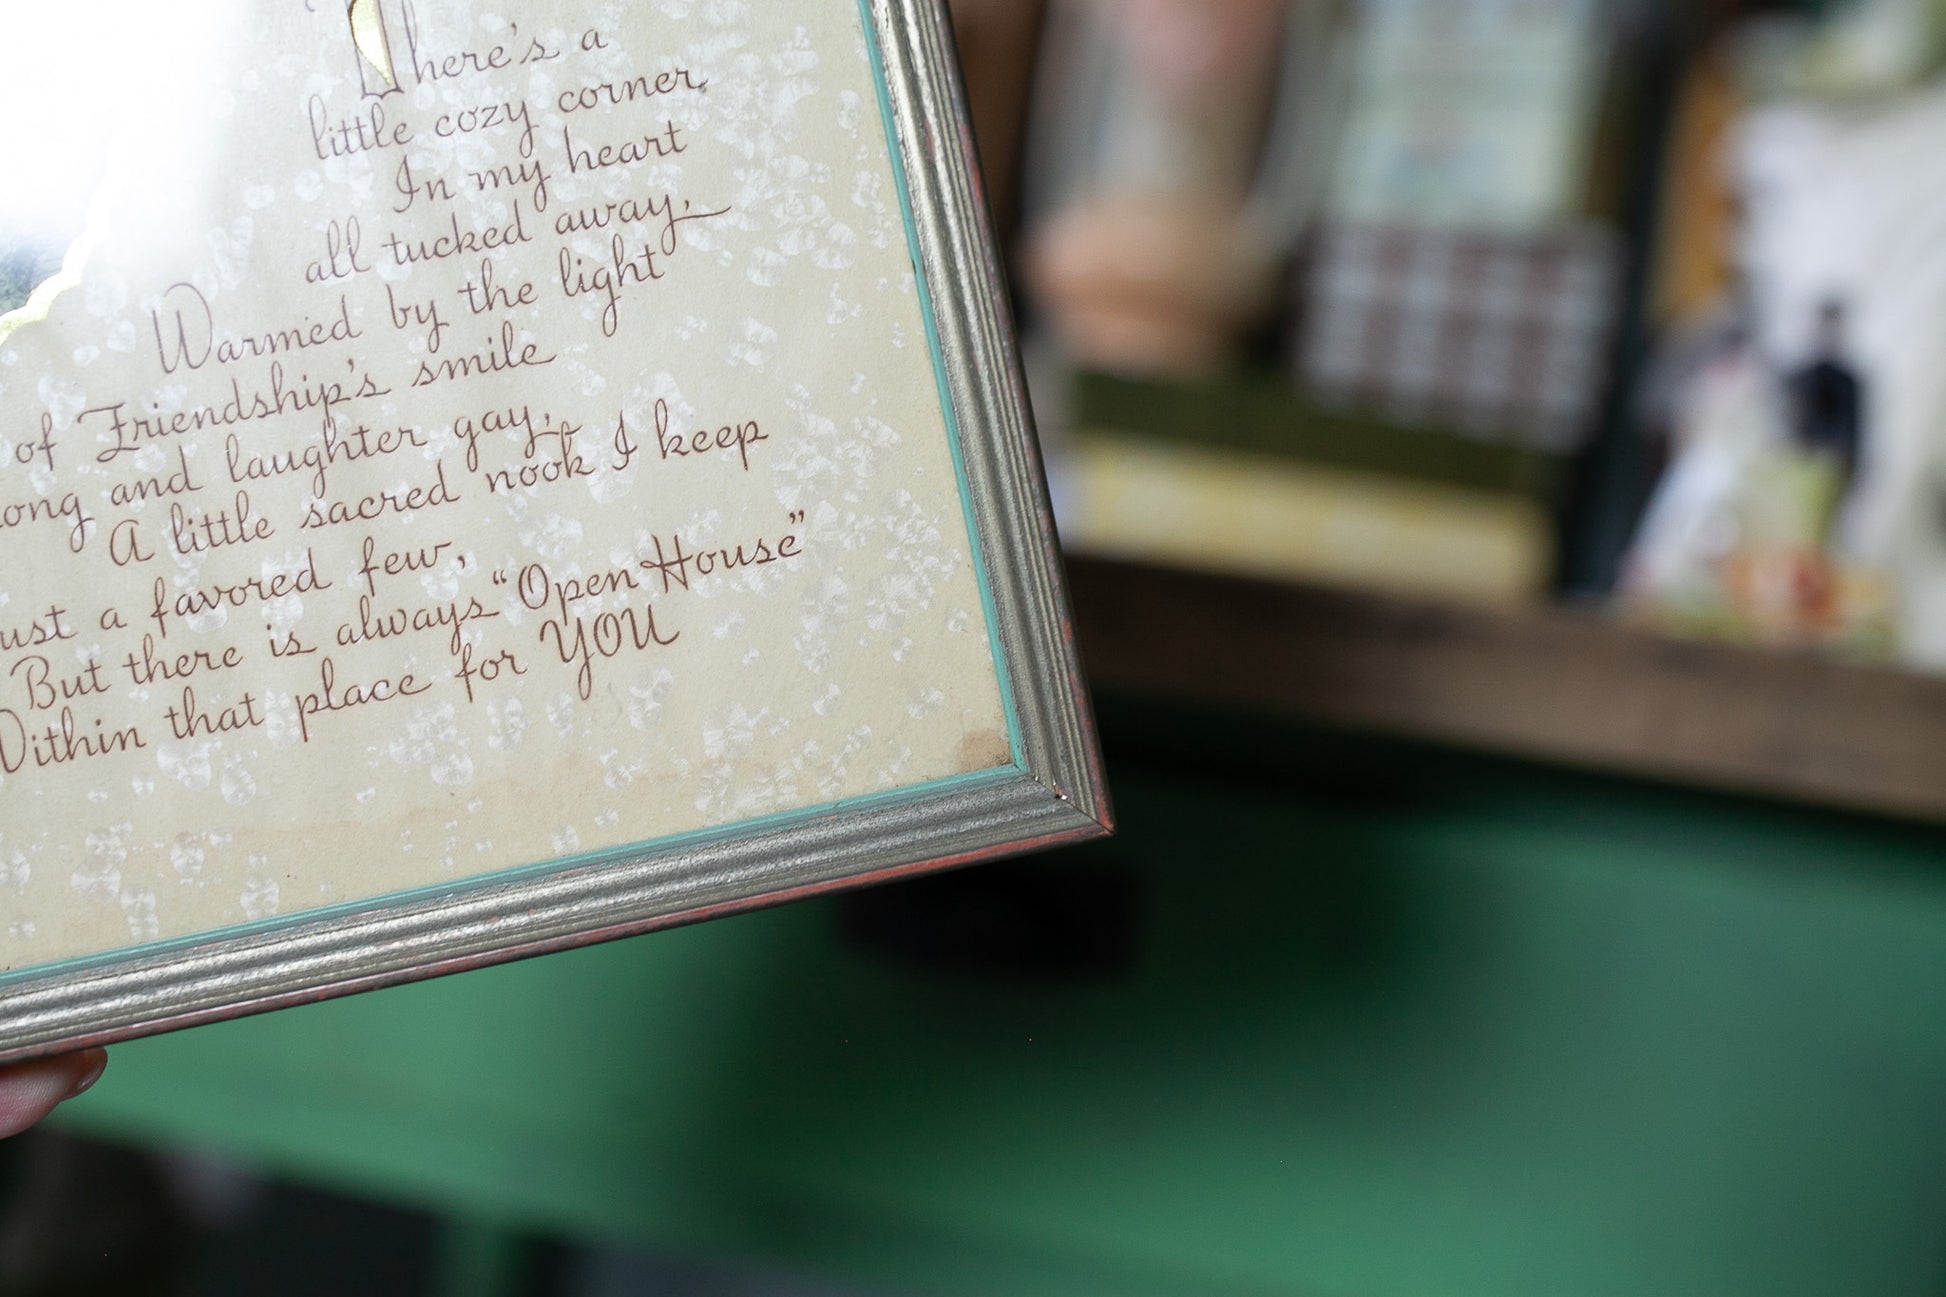 There's a
little cozy corner
In my heart
all tucked away,
Warmed by the light
of Friendship's smile
and laughter gay,
A little sacred nook I keep
a favored few,
But there is always "Open House"
Within that place for YOU